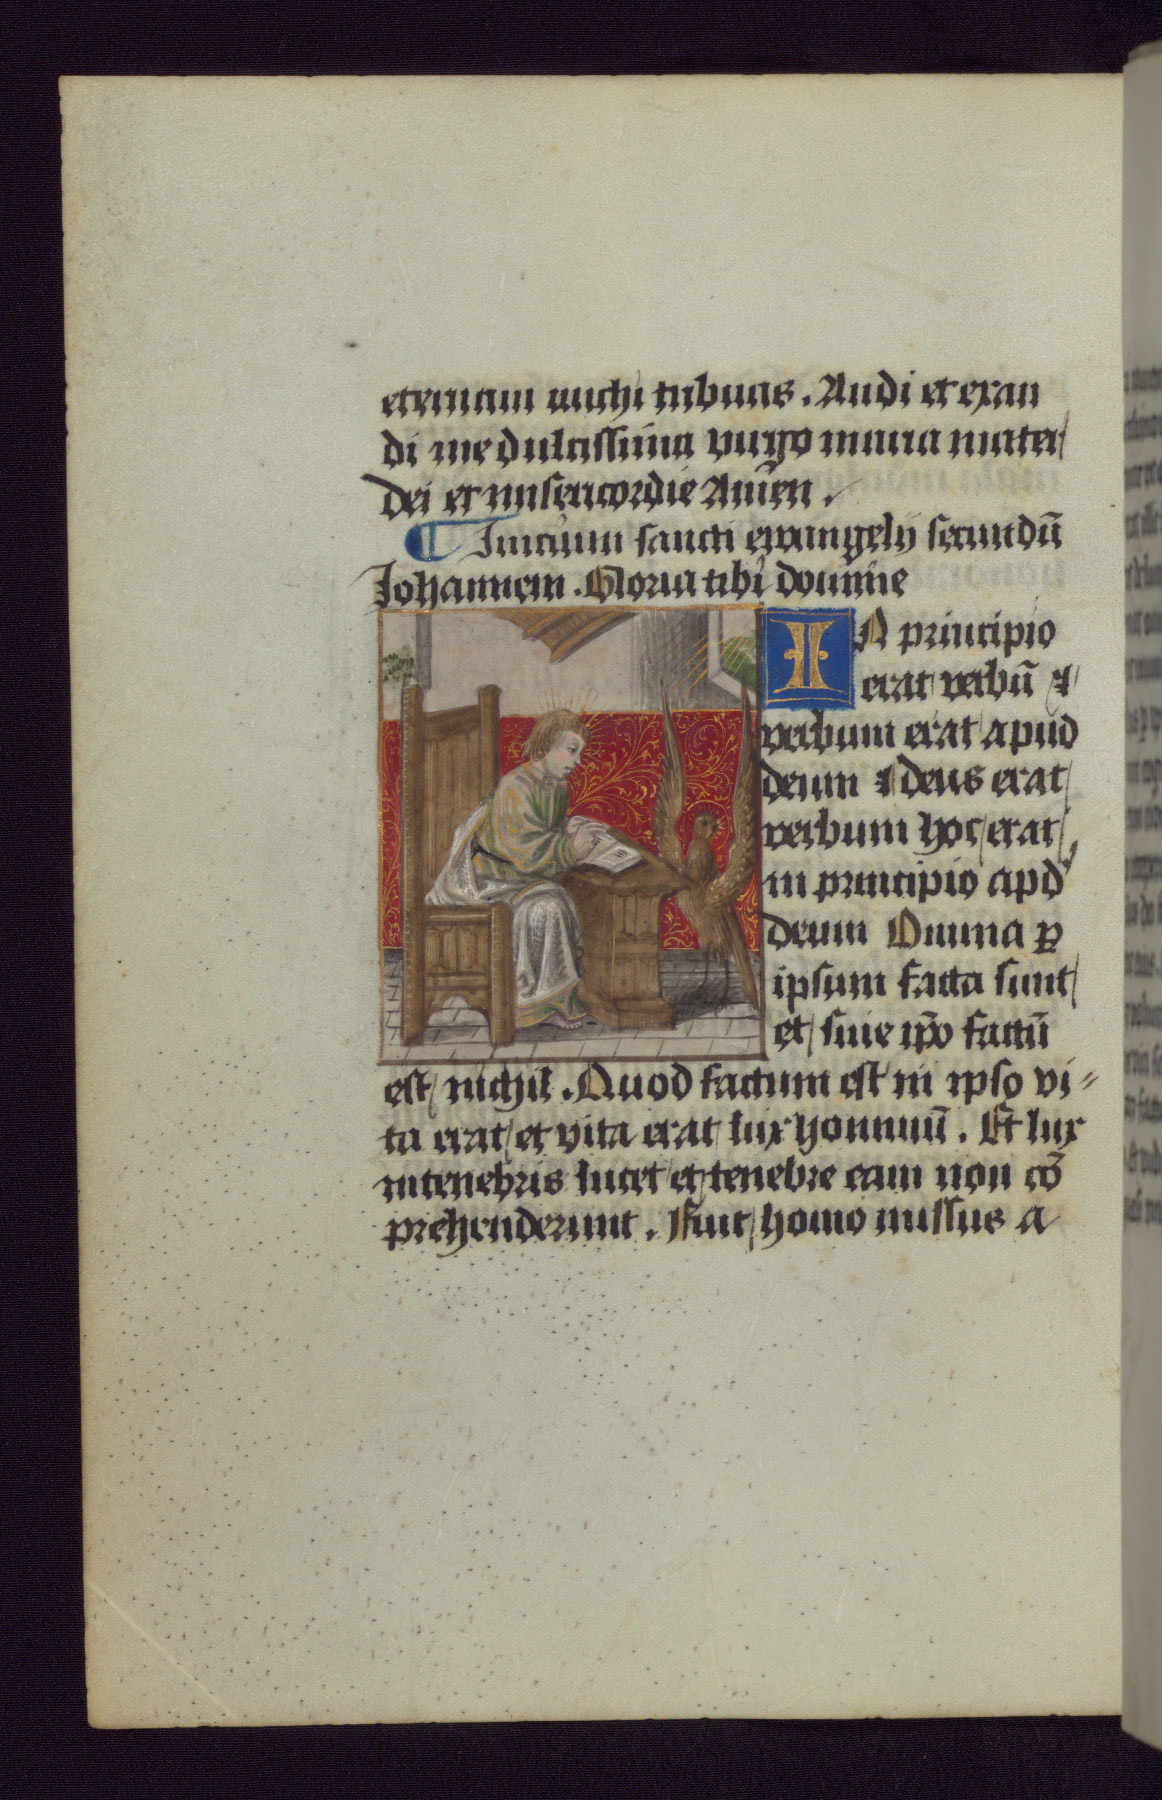 eternam michi tribuas. Audi et exau
di me dulcissima virgo maria mater
dei et misericordie Amen.
Inicium sancti ewangelij secundū
Johannem. Gloria tibi domine
IN principio
erat verbū ⁊
verbum erat apud
deum ⁊ deus erat
verbum hoc erat
in principio apd'
deum Omnia ꝑ
ipsum facta sunt
et sine ip̄o factū
est nichil. Quod factum est in ipso vi-
ta erat et vita erat lux hominū. Et lux
in tenebris lucet et tenebre eam non cō
prehenderunt. Fuit homo missus a